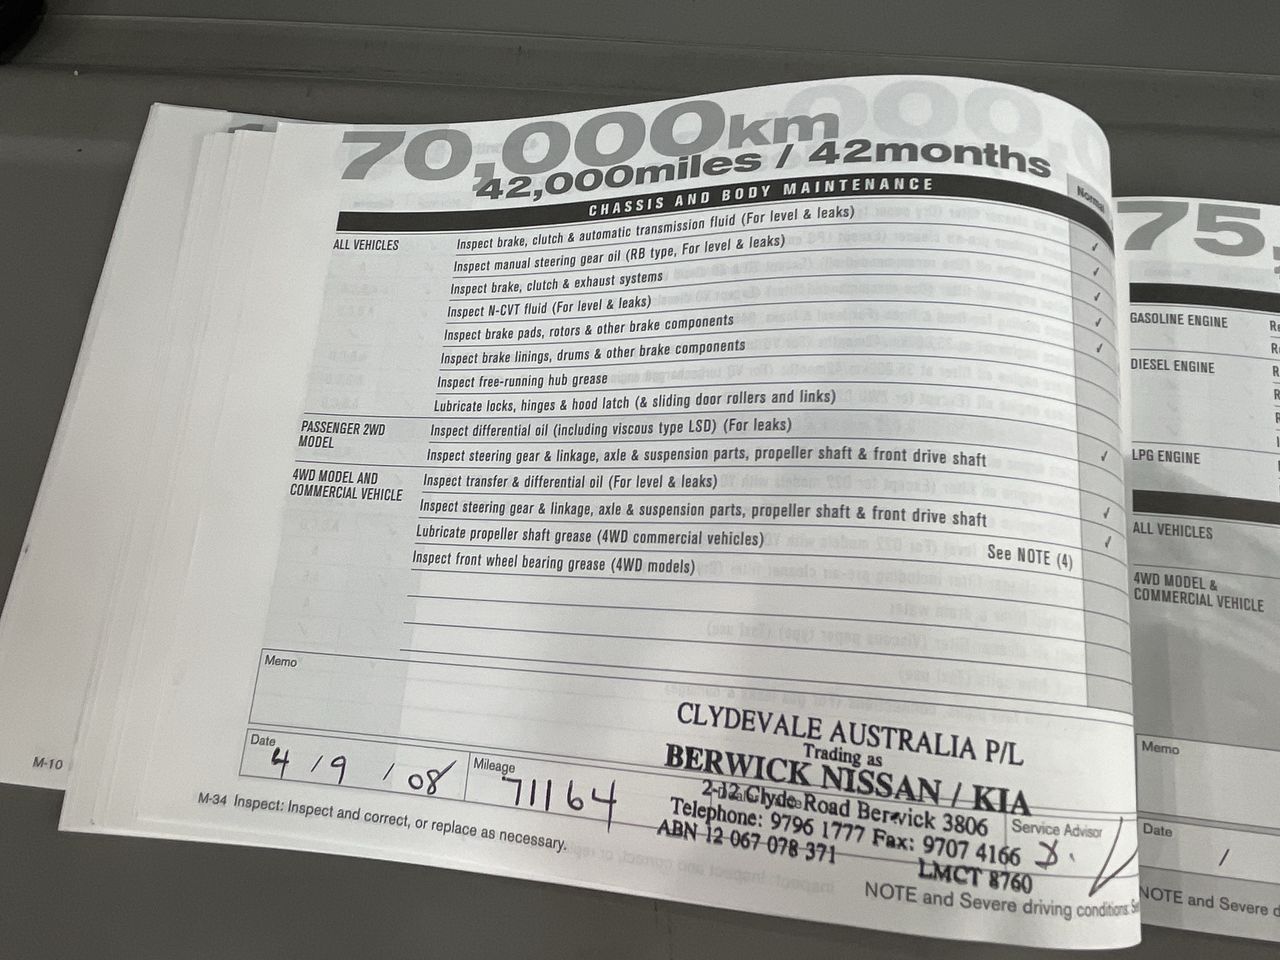 70,000km
42,000miles / 42months
CHASSIS AND BODY MAINTENANCE
Normal
ALL VEHICLES
Inspect brake, clutch & automatic transmission fluid (For level & leaks)
Inspect manual steering gear oil (RB type, For level & leaks)
Inspect brake, clutch & exhaust systems
Inspect N-CVT fluid (For level & leaks)
Inspect brake pads, rotors & other brake components
Inspect brake linings, drums & other brake components
Inspect free-running hub grease
Lubricate locks, hinges & hood latch (& sliding door rollers and links)
PASSENGER 2WD
MODEL
Inspect differential oil (including viscous type LSD) (For leaks)
Inspect steering gear & linkage, axle & suspension parts, propeller shaft & front drive shaft
4WD MODEL AND
COMMERCIAL VEHICLE
Inspect transfer & differential oil (For level & leaks)
Inspect steering gear & linkage, axle & suspension parts, propeller shaft & front drive shaft
Lubricate propeller shaft grease (4WD commercial vehicles)
See NOTE (4)
Inspect front wheel bearing grease (4WD models)
Memo
CLYDEVALE AUSTRALIA P/L
Trading as
BERWICK NISSAN / KIA
2-12 Clyde Road Berwick 3806
Telephone: 9796 1777 Fax: 9707 4166
ABN 12 067 078 371
LMCT 8760
Date
4 / 9 / 08
Mileage
71164
Service Advisor
M-34 Inspect: Inspect and correct, or replace as necessary.
NOTE and Severe driving conditions:
M-10
75,
GASOLINE ENGINE
DIESEL ENGINE
LPG ENGINE
ALL VEHICLES
4WD MODEL &
COMMERCIAL VEHICLE
Memo
Date
/
NOTE and Severe